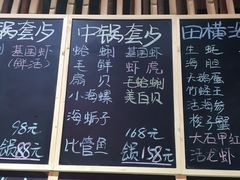 锅套与
基围虾
(鲜活)
98元
锅88元
中锅套与
蛤蜊 基围虾
毛鲜 虾虎
扇贝 毛蛤蜊
小海螺 美白贝
海蛎子
比管鱼
168元
锅158元
田横海
生蚝
海胆
大鹅蛋
竹蛏王
活海肠
梭子蟹
大石甲红
活龙虾